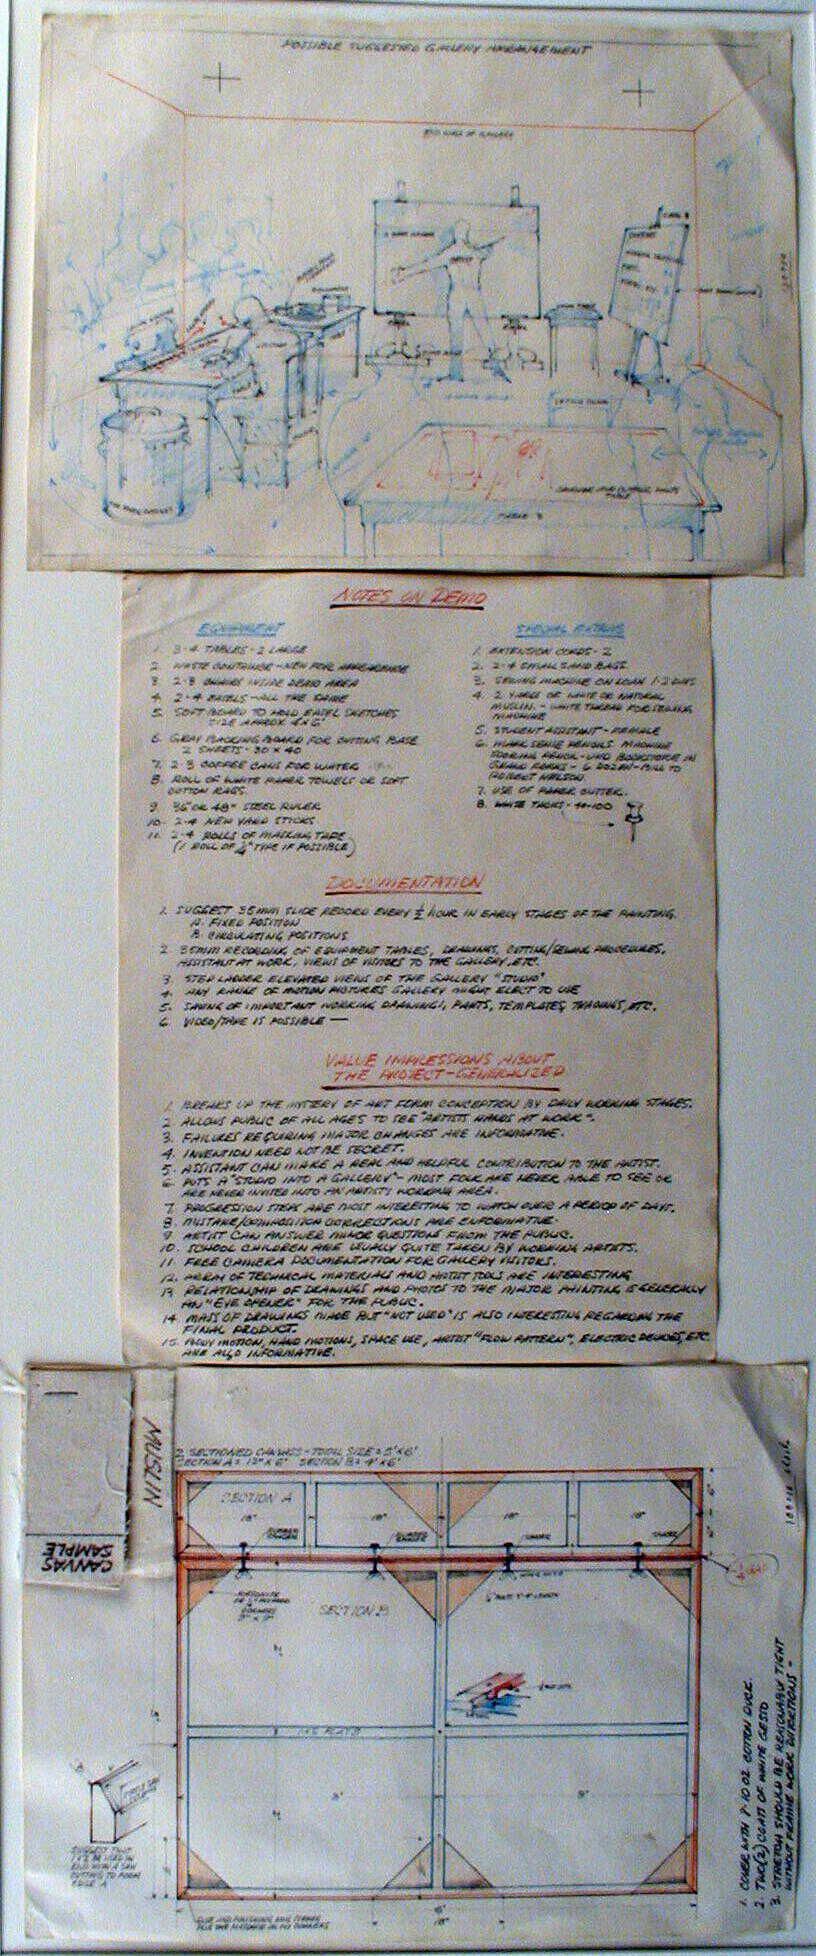 POSSIBLE SUGGESTED GALLERY ARRANGEMENT
END WALL OF GALLERY
TABLE
NOTES ON DEMO
EQUIPMENT
1. 3-4 TABLES - 2 LARGE
2. WASTE CONTAINER - NEW FOR APPEARANCE
3. 2-3 CHAIRS INSIDE DEMO AREA
4. 2-4 EASELS - ALL THE SAME
5. SOFT BOARD TO HOLD EASEL SKETCHES
SIZE APPROX 4'X6'
6. GRAY BACKING BOARD FOR CUTTING BASE
2 SHEETS - 30 X 40
7. 2-3 COFFEE CANS FOR WATER
8. ROLL OF WHITE PAPER TOWELS OR SOFT
COTTON RAGS.
9. 36" OR 48" STEEL RULER
10. 2-4 NEW YARD STICKS
11. 2-4 ROLLS OF MASKING TAPE
(1 ROLL OF TYPE IF POSSIBLE)
SPECIAL EXTRAS
1. EXTENSION CORDS - 2
2. 2-4 SMALL SAND BAGS
3. SEWING MACHINE ON LOAN 1-2 DAYS
4. 2 YARDS OF WHITE OR NATURAL
MUSLIN. - WHITE THREAD FOR SEWING
MACHINE
5. STUDENT ASSISTANT - FEMALE
6. MARK SENSE PENCILS MACHINE
SCORING PENCIL - UND BOOKSTORE IN
GRAND FORKS - 6 DOZEN - BILL TO
ROBERT NELSON
7. USE OF PAPER CUTTER.
8. WHITE TACKS - 40-100
DOCUMENTATION
1. SUGGEST 35MM SLIDE RECORD EVERY ½ HOUR IN EARLY STAGES OF THE PAINTING.
A. FIXED POSITION
B. CIRCULATING POSITIONS
2. 35MM RECORDING OF EQUIPMENT TABLES, DRAWINGS, CUTTING/SEWING PROCEDURES,
ASSISTANT AT WORK, VIEWS OF VISITORS TO THE GALLERY, ETC.
3. STEP LADDER ELEVATED VIEWS OF THE GALLERY "STUDIO"
4. ANY RANGE OF MOTION PICTURES GALLERY MIGHT ELECT TO USE
5. SAVING OF IMPORTANT WORKING DRAWINGS, PARTS, TEMPLATES, TRACINGS, ETC.
6. VIDEO/TAPE IS POSSIBLE —
VALUE IMPRESSIONS ABOUT
THE PROJECT - GENERALIZED
1. BREAKS UP THE MYSTERY OF ART FORM CONCEPTION BY DAILY WORKING STAGES.
2. ALLOWS PUBLIC OF ALL AGES TO SEE "ARTISTS HANDS AT WORK".
3. FAILURES REQUIRING MAJOR CHANGES ARE INFORMATIVE.
4. INVENTION NEED NOT BE SECRET.
5. ASSISTANT CAN MAKE A REAL AND HELPFUL CONTRIBUTION TO THE ARTIST.
6. PUTS A "STUDIO INTO A GALLERY" - MOST FOLK ARE NEVER ABLE TO SEE OR
ARE NEVER INVITED INTO AN ARTISTS WORKING AREA.
7. PROGRESSION STEPS ARE MOST INTERESTING TO WATCH OVER A PERIOD OF DAYS.
8. MISTAKE/COMPOSITION CORRECTIONS ARE INFORMATIVE.
9. ARTIST CAN ANSWER MINOR QUESTIONS FROM THE PUBLIC.
10. SCHOOL CHILDREN ARE USUALLY QUITE TAKEN BY WORKING ARTISTS.
11. FREE CAMERA DOCUMENTATION FOR GALLERY VISITORS.
12. ARRAY OF TECHNICAL MATERIALS AND ARTIST TOOLS ARE INTERESTING
13. RELATIONSHIP OF DRAWINGS AND PHOTOS TO THE MAJOR PAINTING IS GENERALLY
AN "EYE OPENER" FOR THE PUBLIC.
14. MASS OF DRAWINGS MADE BUT "NOT USED" IS ALSO INTERESTING REGARDING THE
FINAL PRODUCT.
15. BODY MOTION, HAND MOTIONS, SPACE USE, ARTIST "FLOW PATTERN", ELECTRIC DEVICES, ETC
ARE ALSO INFORMATIVE.
MUSLIN
CANVAS
SAMPLE
2 SECTIONED CANVAS - TOTAL SIZE = 5'X6'
SECTION A = 12" X 6' SECTION B = 4' X 6'
SECTION A
18" 18" 18" 18"
SECTION B
3' 3'
1. COVER WITH 9-10 OZ COTTON DUCK.
2. TWO (2) COATS OF WHITE GESSO
3. STRETCH SHOULD BE REASONABLY TIGHT
WITHOUT FRAME WORK DISTORTIONS -